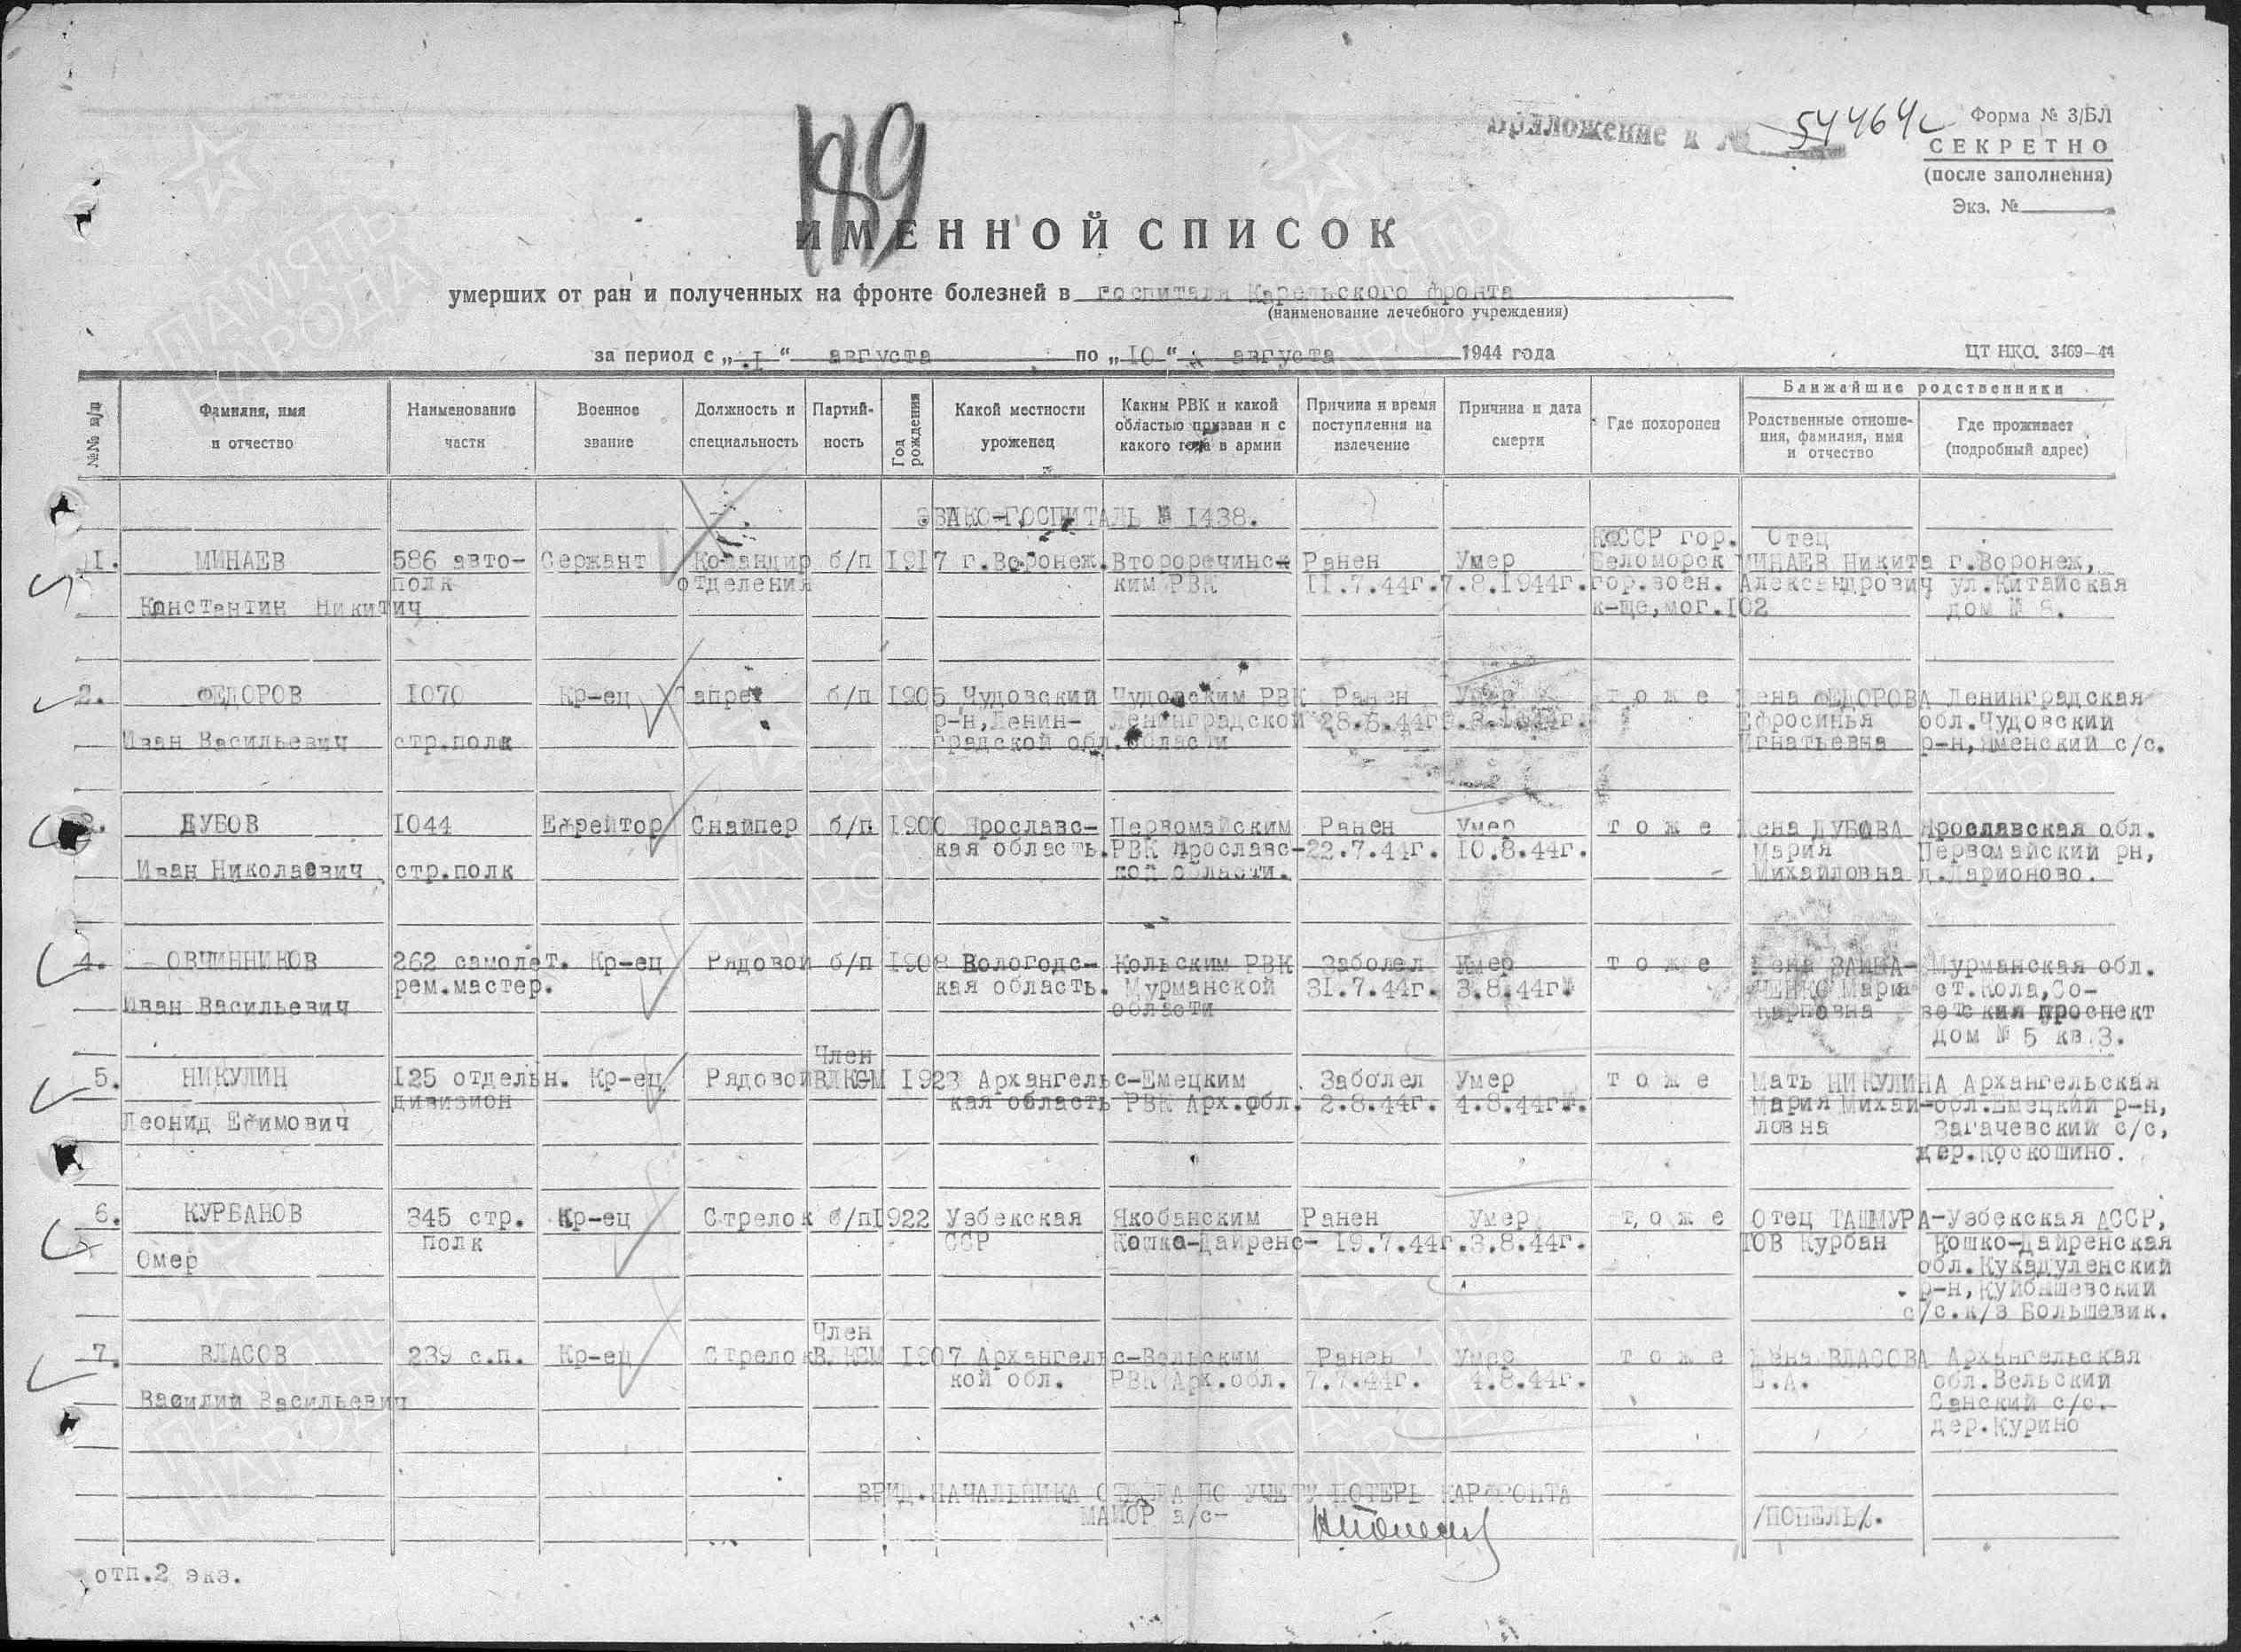 189
Приложение к № 54464с
Форма № 3/БЛ
СЕКРЕТНО
(после заполнения)
Экз. №
ИМЕННОЙ СПИСОК
умерших от ран и полученных на фронте болезней в госпитали Карельского фронта
(наименование лечебного учреждения)
за период с „I“ августа по „IO“ августа 1944 года
ЦТ НКО. 3469—44
№№ п/п
Фамилия, имя и отчество
Наименование части
Военное звание
Должность и специальность
Партийность
Год рождения
Какой местности уроженец
Каким РВК и какой областью призван и с какого года в армии
Причина и время поступления на излечение
Причина и дата смерти
Где похоронен
Ближайшие родственники
Родственные отношения, фамилия, имя и отчество
Где проживает (подробный адрес)
ЭВАКО-ГОСПИТАЛЬ № I438.
КФССР гор. Отец
1. МИНАЕВ 586 авто- Сержант Командир б/п I9I7 г.Воронеж. Второречинс- Ранен Умер Беломорск МИНАЕВ Никита г.Воронеж,
полк отделения ким РВК II.7.44г. 7.8.I944г. гор.воен. Александрович ул.Китайская
Константин Никитич к-ще,мог.I02 дом № 8.
2. ФЕДОРОВ I070 Кр-ец б/п I905 Чудовский Чудовским РВК Ранен Умер т о ж е Жена ФЕДОРОВА Ленинградская
р-н,Ленин- Ленинградской 28.6.44г. Ефросинья обл.Чудовский
Иван Васильевич стр.полк градской обл. области Игнатьевна р-н, с/с.
3. ДУБОВ I044 Ефрейтор Снайпер б/п I900 Ярославс- Первомайским Ранен Умер т о ж е Жена ДУБОВА Ярославская обл.
кая область. РВК Ярославс- 22.7.44г. I0.8.44г. Мария Первомайский рн,
Иван Николаевич стр.полк кой области. Михайловна д.Ларионово.
4. ОВЧИННИКОВ 262 самолет. Кр-ец Рядовой б/п I908 Вологодс- Кольским РВК Заболел Умер т о ж е Жена Мурманская обл.
рем.мастер. кая область. Мурманской 3I.7.44г. 3.8.44г. Мария ст.Кола,Со-
Иван Васильевич области Карповна ветский проспект
дом № 5 кв.3.
Член
5. НИКУЛИН I25 отдельн. Кр-ец Рядовой ВЛКСМ I923 Архангельс- Емецким Заболел Умер т о ж е Мать НИКУЛИНА Архангельская
дивизион кая область РВК Арх.обл. 2.8.44г. 4.8.44г. Мария Михай- обл.Емецкий р-н,
Леонид Ефимович ловна Загачевский с/с,
дер.Коскошино.
6. КУРБАНОВ 345 стр. Кр-ец Стрелок б/п I922 Узбекская Якобанским Ранен Умер т о ж е Отец ТАШМУРА- Узбекская АССР,
полк ССР Кошко-Дайренс- I9.7.44г. 3.8.44г. ТОВ Курбан Кошко-Дайренская
Омер обл.Кукадуленский
р-н,Куйбышевский
с/с.к/з Большевик.
Член
7. ВЛАСОВ 239 с.п. Кр-ец Стрелок ВЛКСМ I907 Архангельс- Вельским Ранен Умер т о ж е Жена ВЛАСОВА Архангельская
кой обл. РВК Арх.обл. 7.7.44г. 4.8.44г. обл.Вельский
Василий Васильевич Санский с/с.
дер.Курино
ВРИД.НАЧАЛЬНИКА ОТДЕЛА ПО УЧЕТУ ПОТЕРЬ КАРФРОНТА
МАЙОР а/с- /ПОПЕЛЬ/.
отп.2 экз.
ПАМЯТЬ НАРОДА